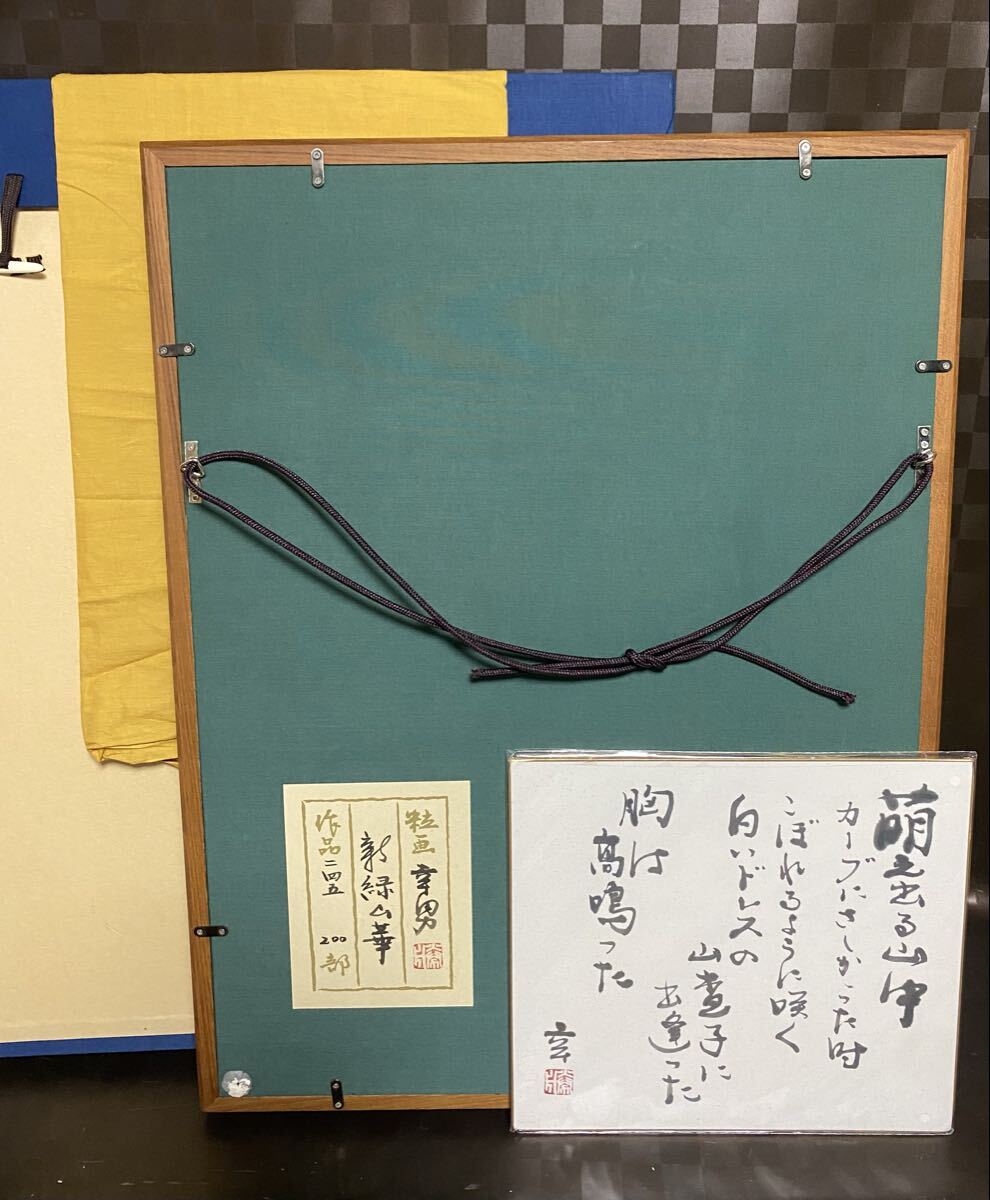 粒画 幸男
新緑山華
作品二四五 200部
萌え出る山中
カーブにさしかかった時
こぼれるように咲く
白いドレスの
山査子に
出逢った
胸は
高鳴った